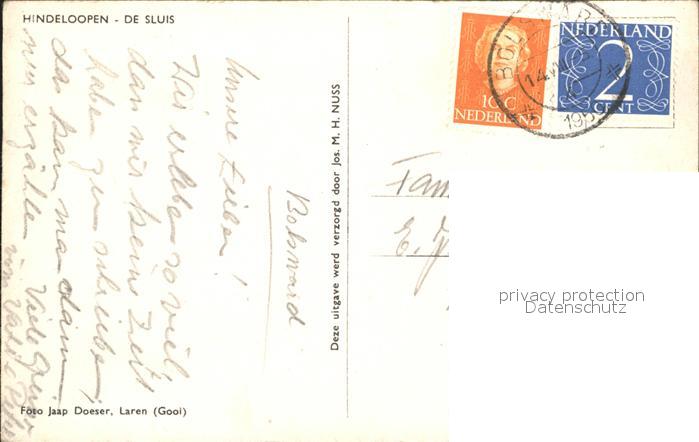 HINDELOOPEN - DE SLUIS
Bolsward
Unsere Lieben!
Wir erleben so viel,
dass wir keine Zeit
haben zum schreiben,
das kann man dann
nur erzählen. Viele Grüsse
von Vati
Foto Jaap Doeser, Laren (Gooi)
Deze uitgave werd verzorgd door Jos. M. H. NUSS
10 C
NEDERLAND
NEDERLAND
2
CENT
BOLSWARD
14
195
Fam
E. J
privacy protection
Datenschutz